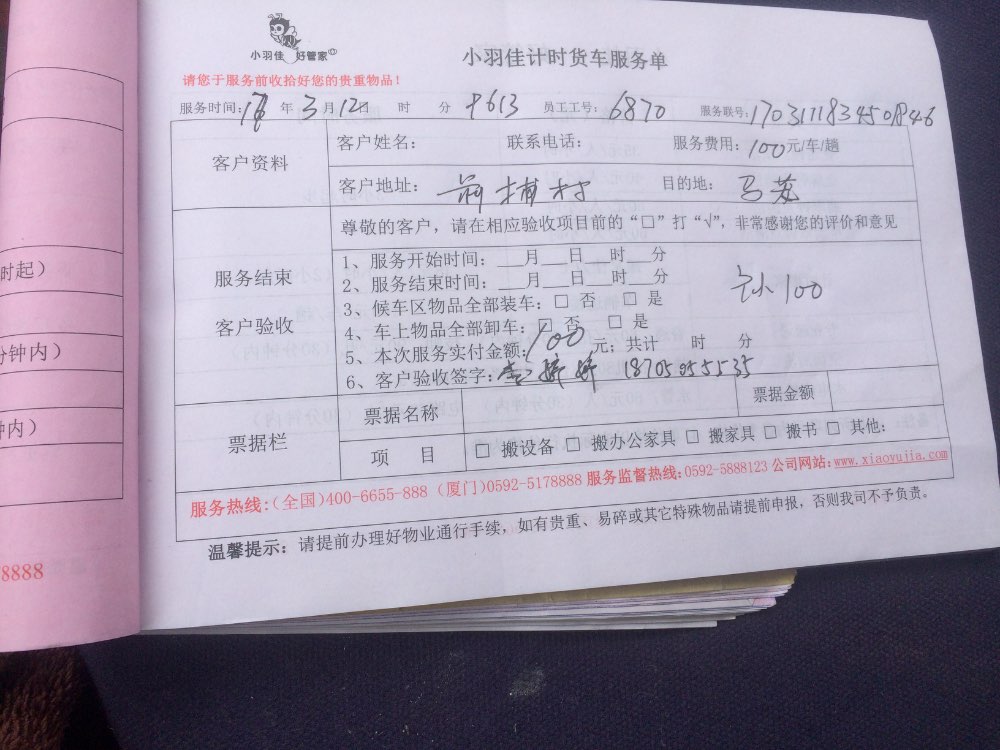 小羽佳 好管家©
小羽佳计时货车服务单
请您于服务前收拾好您的贵重物品！
服务时间: 年 3 月 12日 时 分 613 员工工号: 6870 服务联号:
客户资料
客户姓名: 联系电话: 服务费用: 100元/车/趟
客户地址: 前埔村 目的地:
服务结束
客户验收
尊敬的客户，请在相应验收项目前的“□”打“√”，非常感谢您的评价和意见
1、服务开始时间: ___月___日___时___分
2、服务结束时间: ___月___日___时___分
3、候车区物品全部装车: □ 否 □ 是
4、车上物品全部卸车: □ 否 □ 是
100
5、本次服务实付金额: 100 元; 共计 时 分
6、客户验收签字: 18705055535
票据栏
票据名称 票据金额
项 目 □ 搬设备 □ 搬办公家具 □ 搬家具 □ 搬书 □ 其他:
服务热线:(全国)400-6655-888 (厦门)0592-5178888 服务监督热线:0592-5888123 公司网站:www.xiaoyujia.com
温馨提示: 请提前办理好物业通行手续，如有贵重、易碎或其它特殊物品请提前申报，否则我司不予负责。
时起)
分钟内)
钟内)
8888